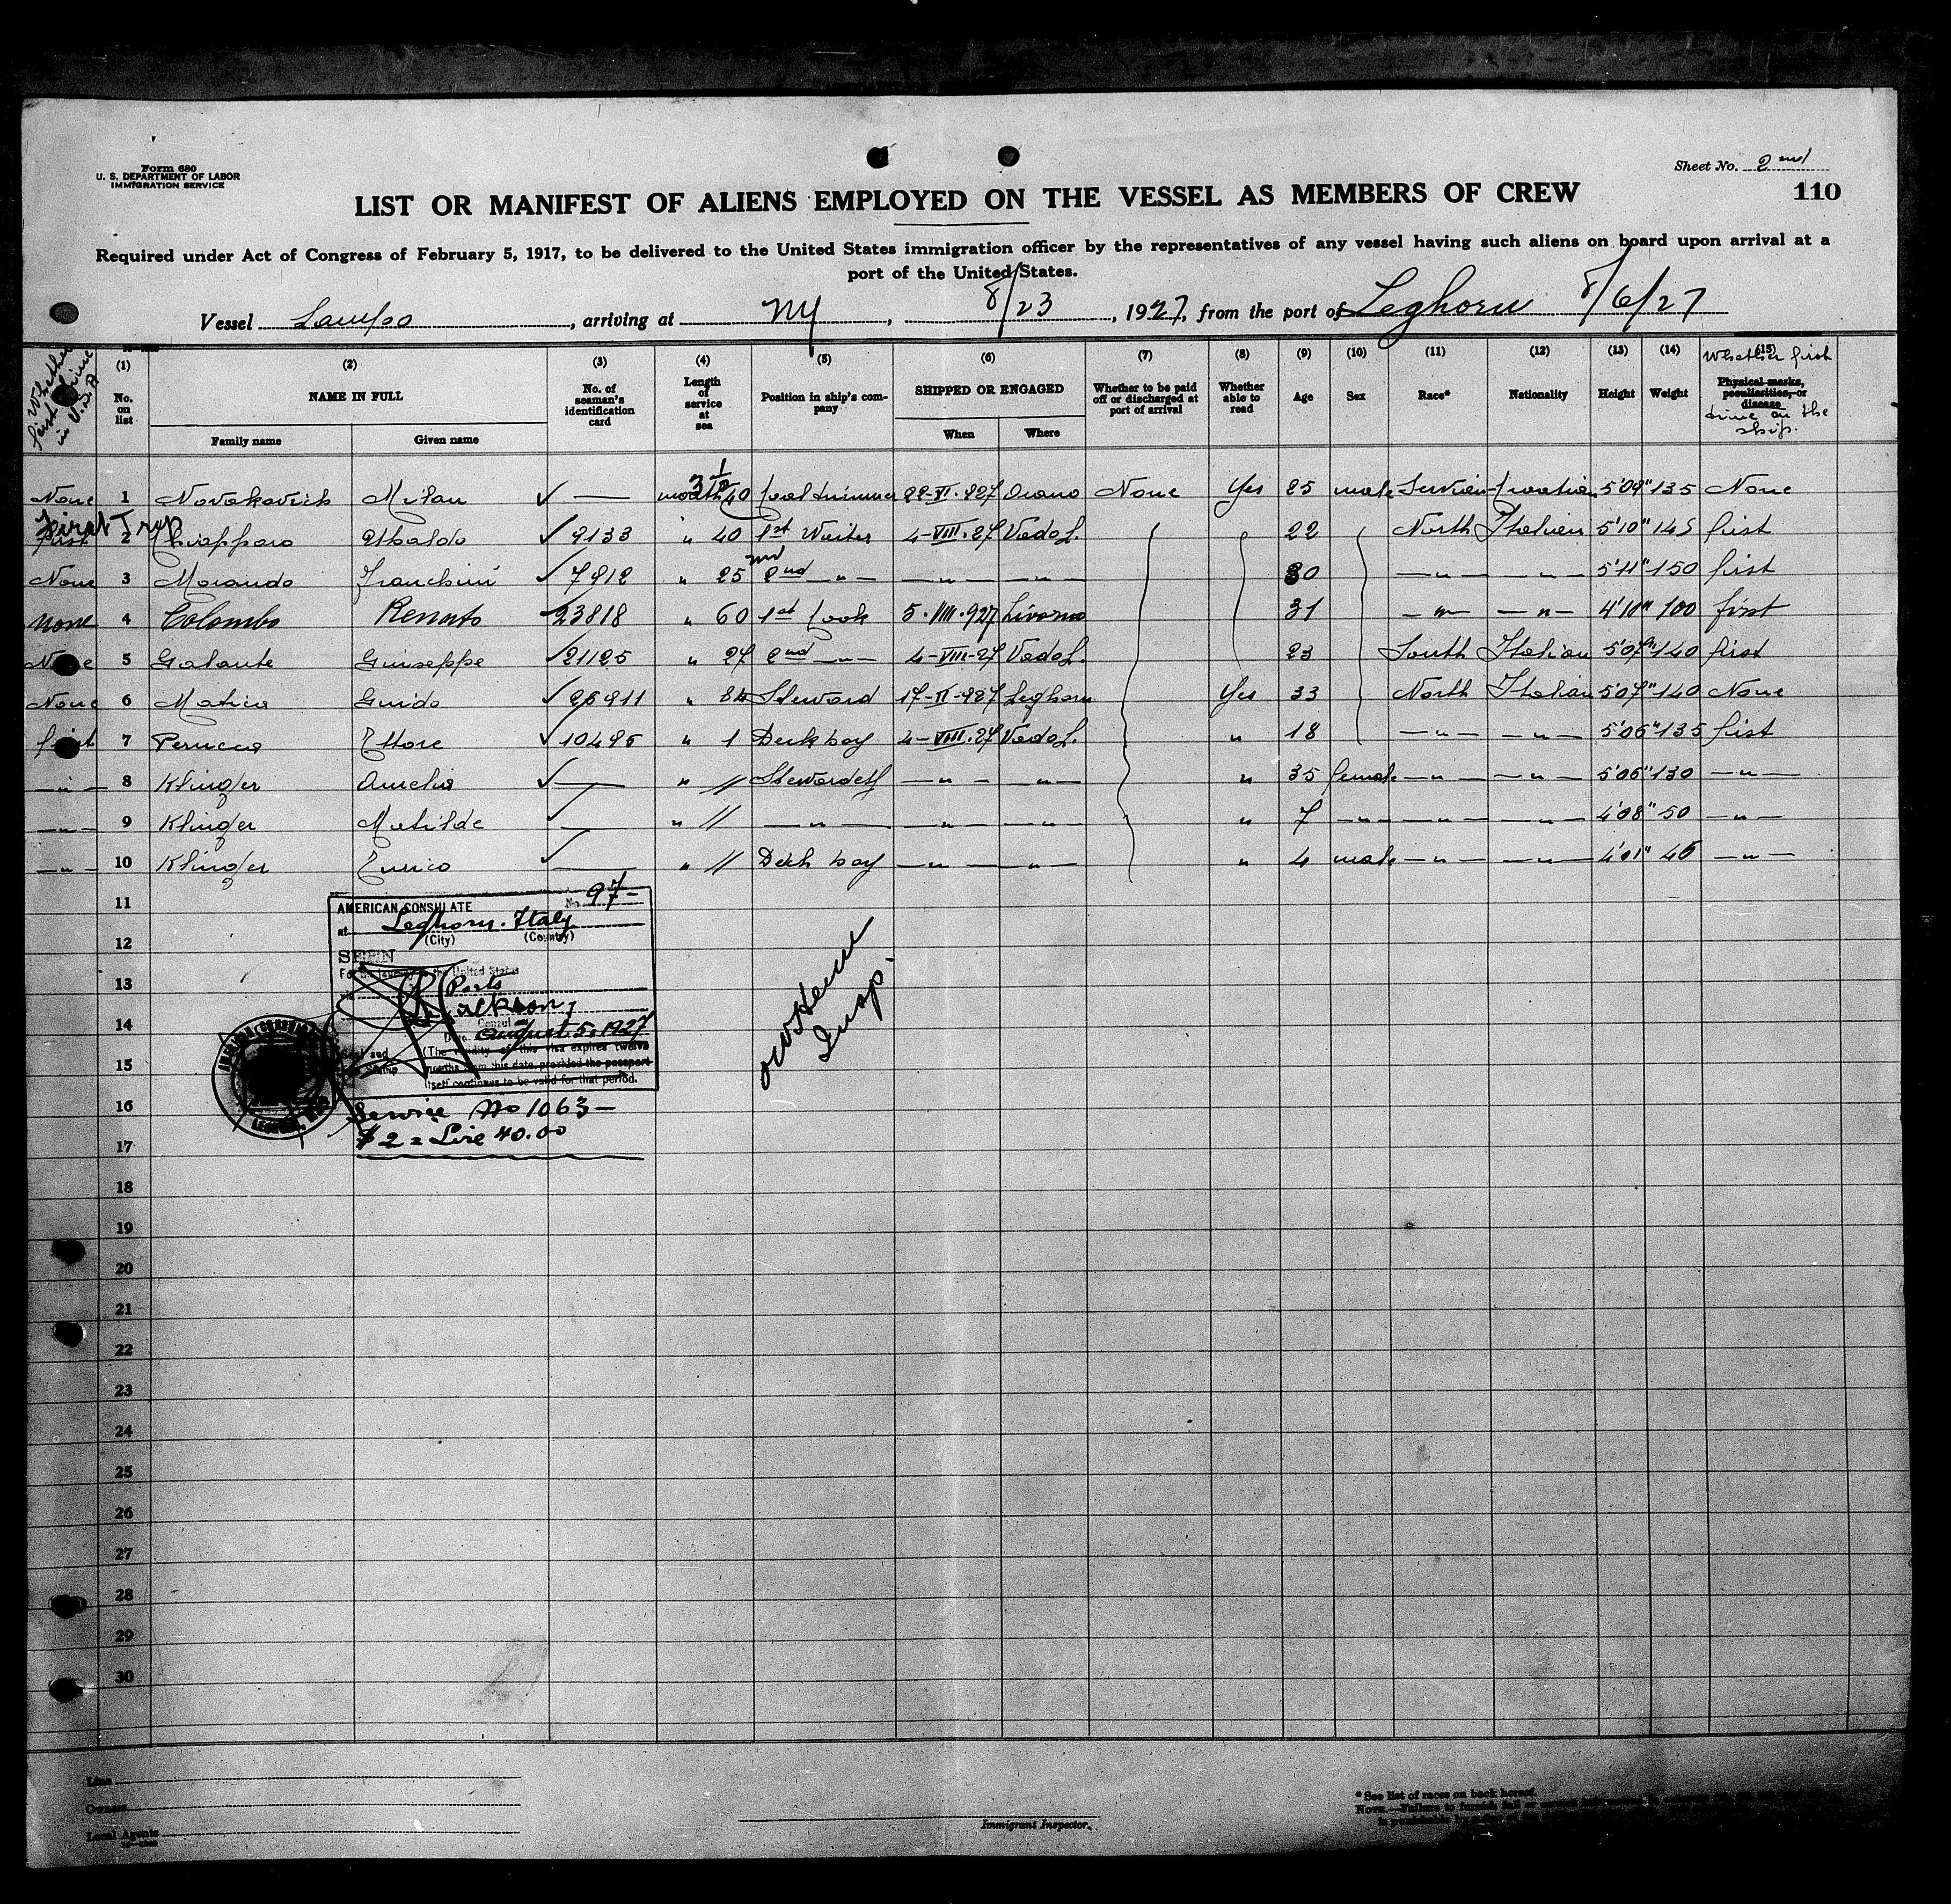 Form 680
U. S. DEPARTMENT OF LABOR
IMMIGRATION SERVICE
Sheet No. 2nd
110
LIST OR MANIFEST OF ALIENS EMPLOYED ON THE VESSEL AS MEMBERS OF CREW
Required under Act of Congress of February 5, 1917, to be delivered to the United States immigration officer by the representatives of any vessel having such aliens on board upon arrival at a
port of the United States.
Vessel Lampo, arriving at NY, 8/23, 1927, from the port of Leghorn 8/6/27
Whether first time in U.S.A
(1) (2) (3) (4) (5) (6) (7) (8) (9) (10) (11) (12) (13) (14) (15)
No. on list
NAME IN FULL
Family name
Given name
No. of seaman's identification card
Length of service at sea
Position in ship's company
SHIPPED OR ENGAGED
When
Where
Whether to be paid off or discharged at port of arrival
Whether able to read
Age
Sex
Race*
Nationality
Height
Weight
Physical marks, peculiarities, or disease
Whether first time on the ship.
None 1 Novakovich Milan ✓ — 40 Coal trimmer 22-VI-927 Orano None Yes 25 male Servian-Croatian 5'09" 135 None
First Trip
first 2 Chiappara Ubaldo ✓ 9133 " 40 1st Waiter 4-VIII-27 Vado L. 22 North Italian 5'10" 145 first
None 3 Morando Franchini ✓ 7912 " 25 2nd —"— —"— —"— 30 —"— —"— 5'11" 150 first
None 4 Colombo Renato ✓ 23818 " 60 1st Cook 5-VIII-927 Livorno 31 —"— —"— 4'10" 100 first
None 5 Galante Giuseppe ✓ 21125 " 27 2nd —"— 4-VIII-27 Vado L. 23 South Italian 5'07" 140 first
None 6 Matica Guido ✓ 26911 " 84 Steward 17-II-927 Leghorn Yes 33 North Italian 5'07" 140 None
first 7 Perucca Ettore ✓ 10495 " 1 Deck boy 4-VIII-27 Vado L. " 18 —"— —"— 5'06" 135 first
—"— 8 Klinger Amelia ✓ — " // Stewardess —"— —"— " 35 female —"— —"— 5'06" 130 —"—
—"— 9 Klinger Matilde ✓ — " // —"— —"— —"— " 7 —"— —"— —"— 4'08" 50 —"—
—"— 10 Klinger Enrico ✓ — " // Deck boy —"— —"— " 4 male —"— —"— 4'01" 46 —"—
11
12
13
14
15
16
17
18
19
20
21
22
23
24
25
26
27
28
29
30
AMERICAN CONSULATE
No. 97-
at Leghorn. Italy
(City) (Country)
SEEN
For the journey to the United States
Ports
Jackson,
Consul
Date August 5, 1927
(The validity of this visa expires twelve
months from this date, provided the passport
itself continues to be valid for that period.
Seal and Stamp
AMERICAN CONSULATE
LEGHORN, ITALY
Service No 1063-
$2 = Lire 40.00
Insp.
Line
Owners
Local Agents
Immigrant Inspector.
* See list of races on back hereof.
NOTE.—Failure to furnish full or
is punishable by